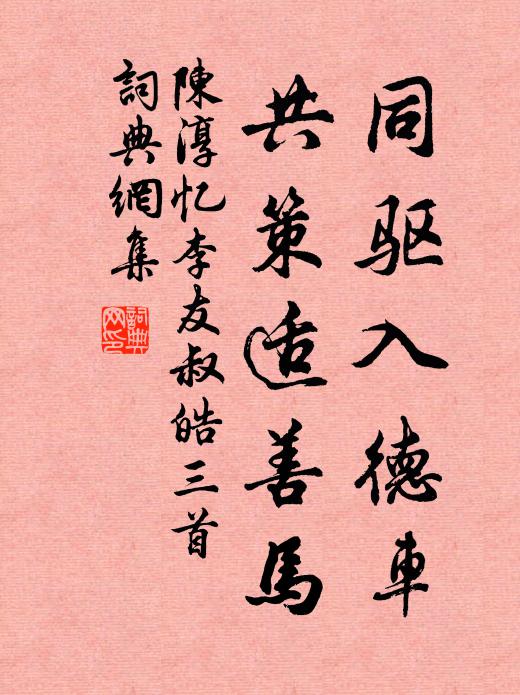 同驱入德車
共策适善馬
陳淳忆李友叔皓三首
詞典網集
詞典
网印